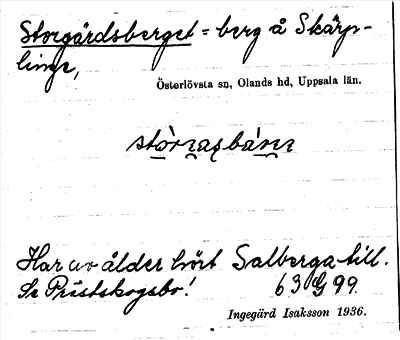 Storgärdsberget = berg å Skärp-
linge,
Österlövsta sn, Olands hd, Uppsala län.
Har av ålder hört Salberga till.
Se Prästskogsbo! 63 G 99.
Ingegärd Isaksson 1936.